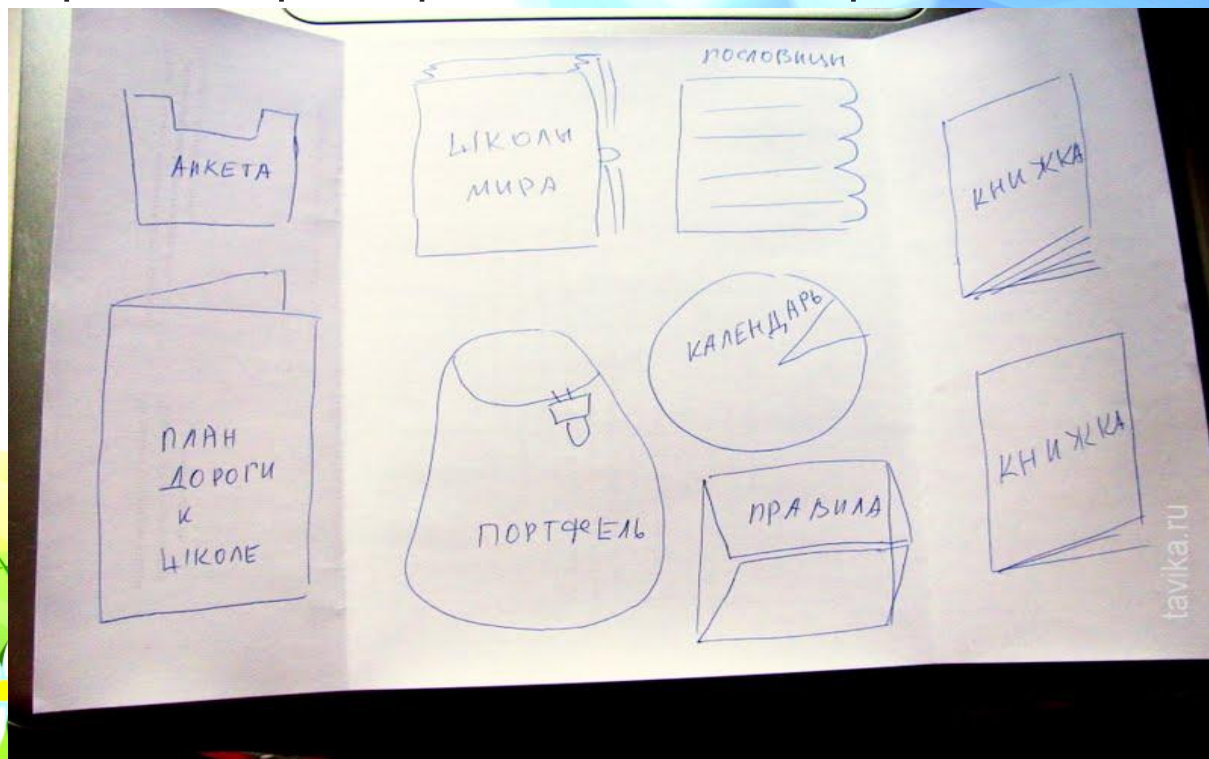 АНКЕТА
ПЛАН
ДОРОГИ
К
ШКОЛЕ
ШКОЛЫ
МИРА
ПОСЛОВИЦЫ
КАЛЕНДАРЬ
ПОРТФЕЛЬ
ПРАВИЛА
КНИЖКА
КНИЖКА
tavika.ru